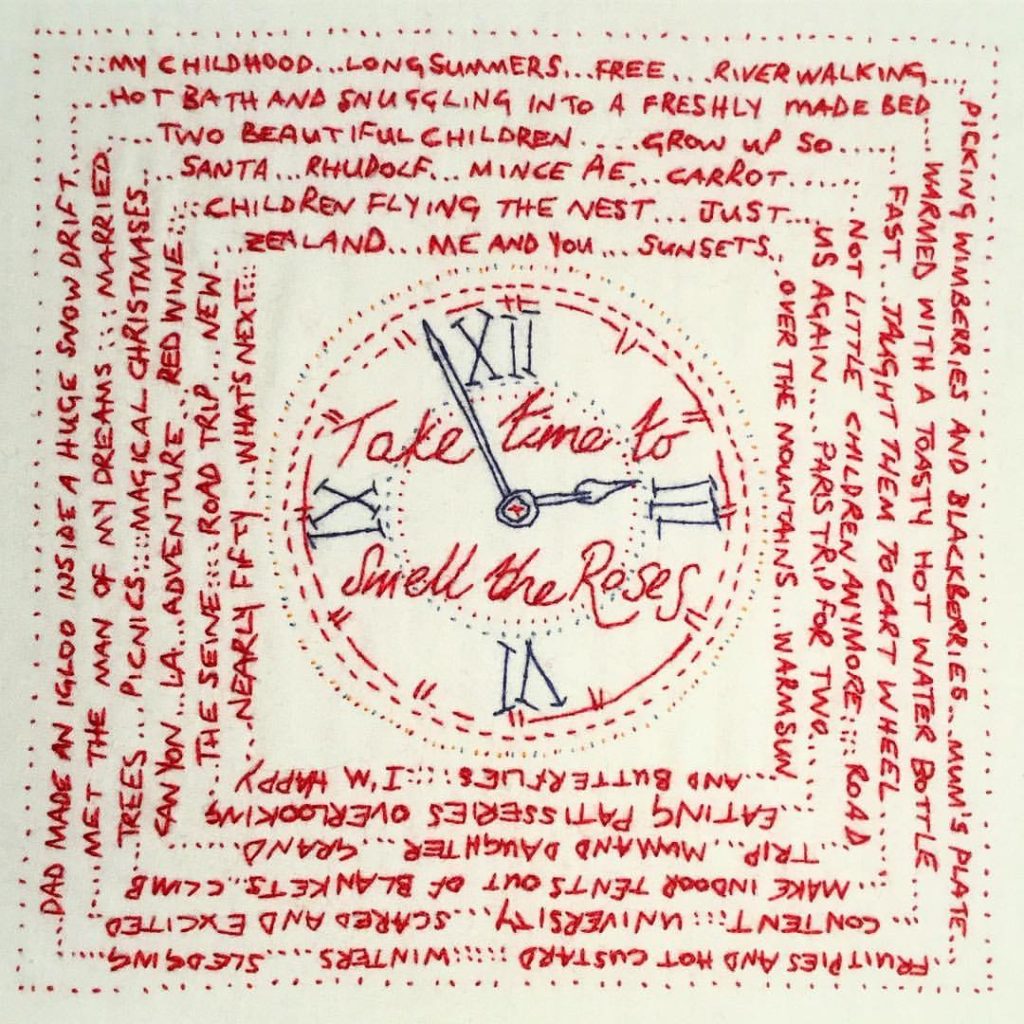 :::MY CHILDHOOD...LONG SUMMERS...FREE...RIVER WALKING....
PICKING WIMBERRIES AND BLACKBERRIES...MUM'S PLATE
FRUIT PIES AND HOT CUSTARD :::::WINTERS.....SLEDGING
...DAD MADE AN IGLOO INSIDE A HUGE SNOWDRIFT...
...HOT BATH AND SNUGGLING INTO A FRESHLY MADE BED
WARMED WITH A TOASTY HOT WATER BOTTLE
CONTENT ::::UNIVERSITY....SCARED AND EXCITED
MET THE MAN OF MY DREAMS :::: MARRIED
....TWO BEAUTIFUL CHILDREN.....GROW UP SO.....
FAST...TAUGHT THEM TO CART WHEEL
MAKE INDOOR TENTS OUT OF BLANKETS..CLIMB
TREES....PICNICS::::MAGICAL CHRISTMASES
...SANTA...RHUDOLF...MINCE PIE...CARROT......
NOT LITTLE CHILDREN ANYMORE::::ROAD
TRIP...MUM AND DAUGHTER....GRAND
CANYON...LA...ADVENTURE...RED WINE
:::CHILDREN FLYING THE NEST...JUST...
US AGAIN....PARIS TRIP FOR TWO
EATING PATISSERIES OVERLOOKING
THE SEINE:::ROAD TRIP...NEW
...ZEALAND...ME AND YOU...SUNSETS..
OVER THE MOUNTAINS...WARM SUN
...AND BUTTERFLIES::::I'M HAPPY
...NEARLY FIFTY...WHAT'S NEXT:::
XII
Take time to
IX III
Smell the Roses
VI